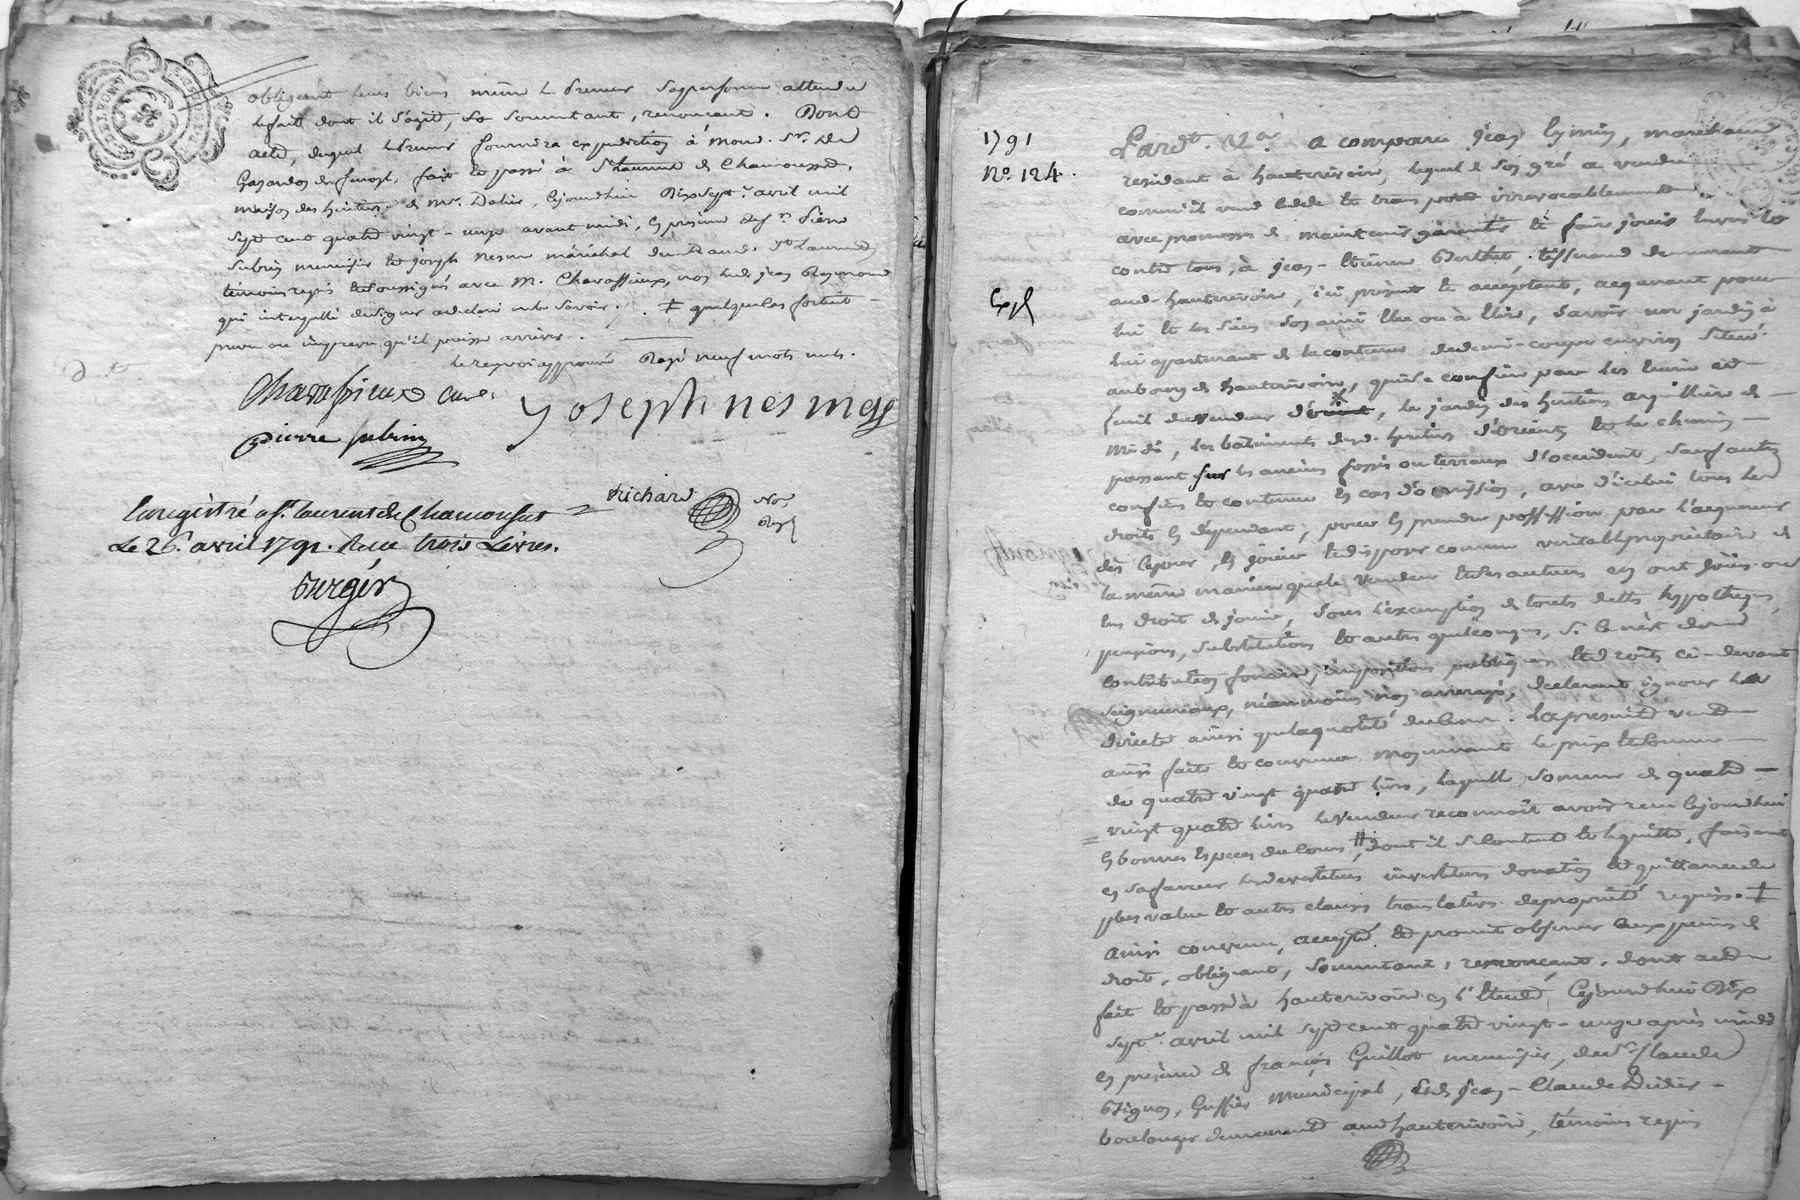 obligeant leurs biens même le preneur sa personne attendu
le fait dont il s'agit, se soumettant, renonçant. Dont
acte, duquel le preneur fournira expédition à mond. Sr. de
fait et passé à St Laurent de Chamousset,
maison des héritiers de Mr. Dalin, cejourdhui Dix sept avril mil
sept cent quatre vingt-onze avant midi, en présence de Sr. Pierre
Subrin menuisier et Joseph Nesme maréchal demt. aud. St Laurent
témoins requis et soussignés avec M. Chavassieux, non led. jean
qui interpellé de signer a déclaré ne le savoir. ‡ quelque cas fortuit
prévu ou imprévu qu'il puisse arriver.
le renvoi approuvé Rayé neuf mots nuls.
Chavassieux curé
yoseph nesme
pierre subrin
Richard Nore
Enregistré a St. Laurent de Chamousset
Le 26. avril 1791. Reçu trois Livres.
1791
No. 124.
Exp
Pardt. Nre. a comparu jean marchand
résidant à hauterivoire, lequel de son gré a vendu
comm'il vend cède et transporte irrévocablement
avec promesse de maintenir garantir et faire jouir envers et
contre tous, à jean-étienne Berthet, tisserand demeurant
aud. hauterivoire, ici présent et acceptant, acquérant pour
lui et les siens son ami élu ou à élire, savoir un jardin à
lui appartenant de la contenue de demi-coupe environ situé
au bourg de hauterivoire, qui se confine par les
du vendeur le jardin des héritiers de
midi, les bâtiments desd. héritiers d'orient et le chemin
passant sur les anciens fossés ou terraux d'occident, sauf autres
confins et contenue en cas d'omission, avec d'icelui tous les
droits en dépendant, pour en prendre possession par l'acquéreur
dès ce jour, en jouir et disposer comme véritable propriétaire de
la même manière que le vendeur et ses auteurs en ont joui ou
eu droit de jouir, sous l'exemption de toutes dettes hypothèques,
pensions, substitutions et autres quelconques, si ce n'est de
contribution foncière, impositions publiques et droits ci-devant
seigneuriaux, néanmoins non arréragés, déclarant ignorer la
directe ainsi que la quotité du cens. La présente vente
ainsi faite et convenue moyennant le prix et somme
de quatre vingt quatre livres, laquelle somme de quatre
vingt quatre livres le vendeur reconnoît avoir reçu cejourdhui
en bonnes espèces de cours, dont il se contente et le quitte, faisant
en sa faveur les dévestiture investiture donation et quittance de
plus value et autres clauses translatives de propriété requises. ‡
ainsi convenu, accepté et promis observer aux peines de
droit, obligeant, soumettant, renonçant. dont acte
fait et passé à hauterivoire en l'étude, cejourdhui Dix
sept avril mil sept cent quatre vingt-onze après midi
en présence de françois Guillot menuisier, de Sr. Claude
greffier municipal, et de jean-Claude Didier
boulanger demeurant aud. hauterivoire, témoins requis